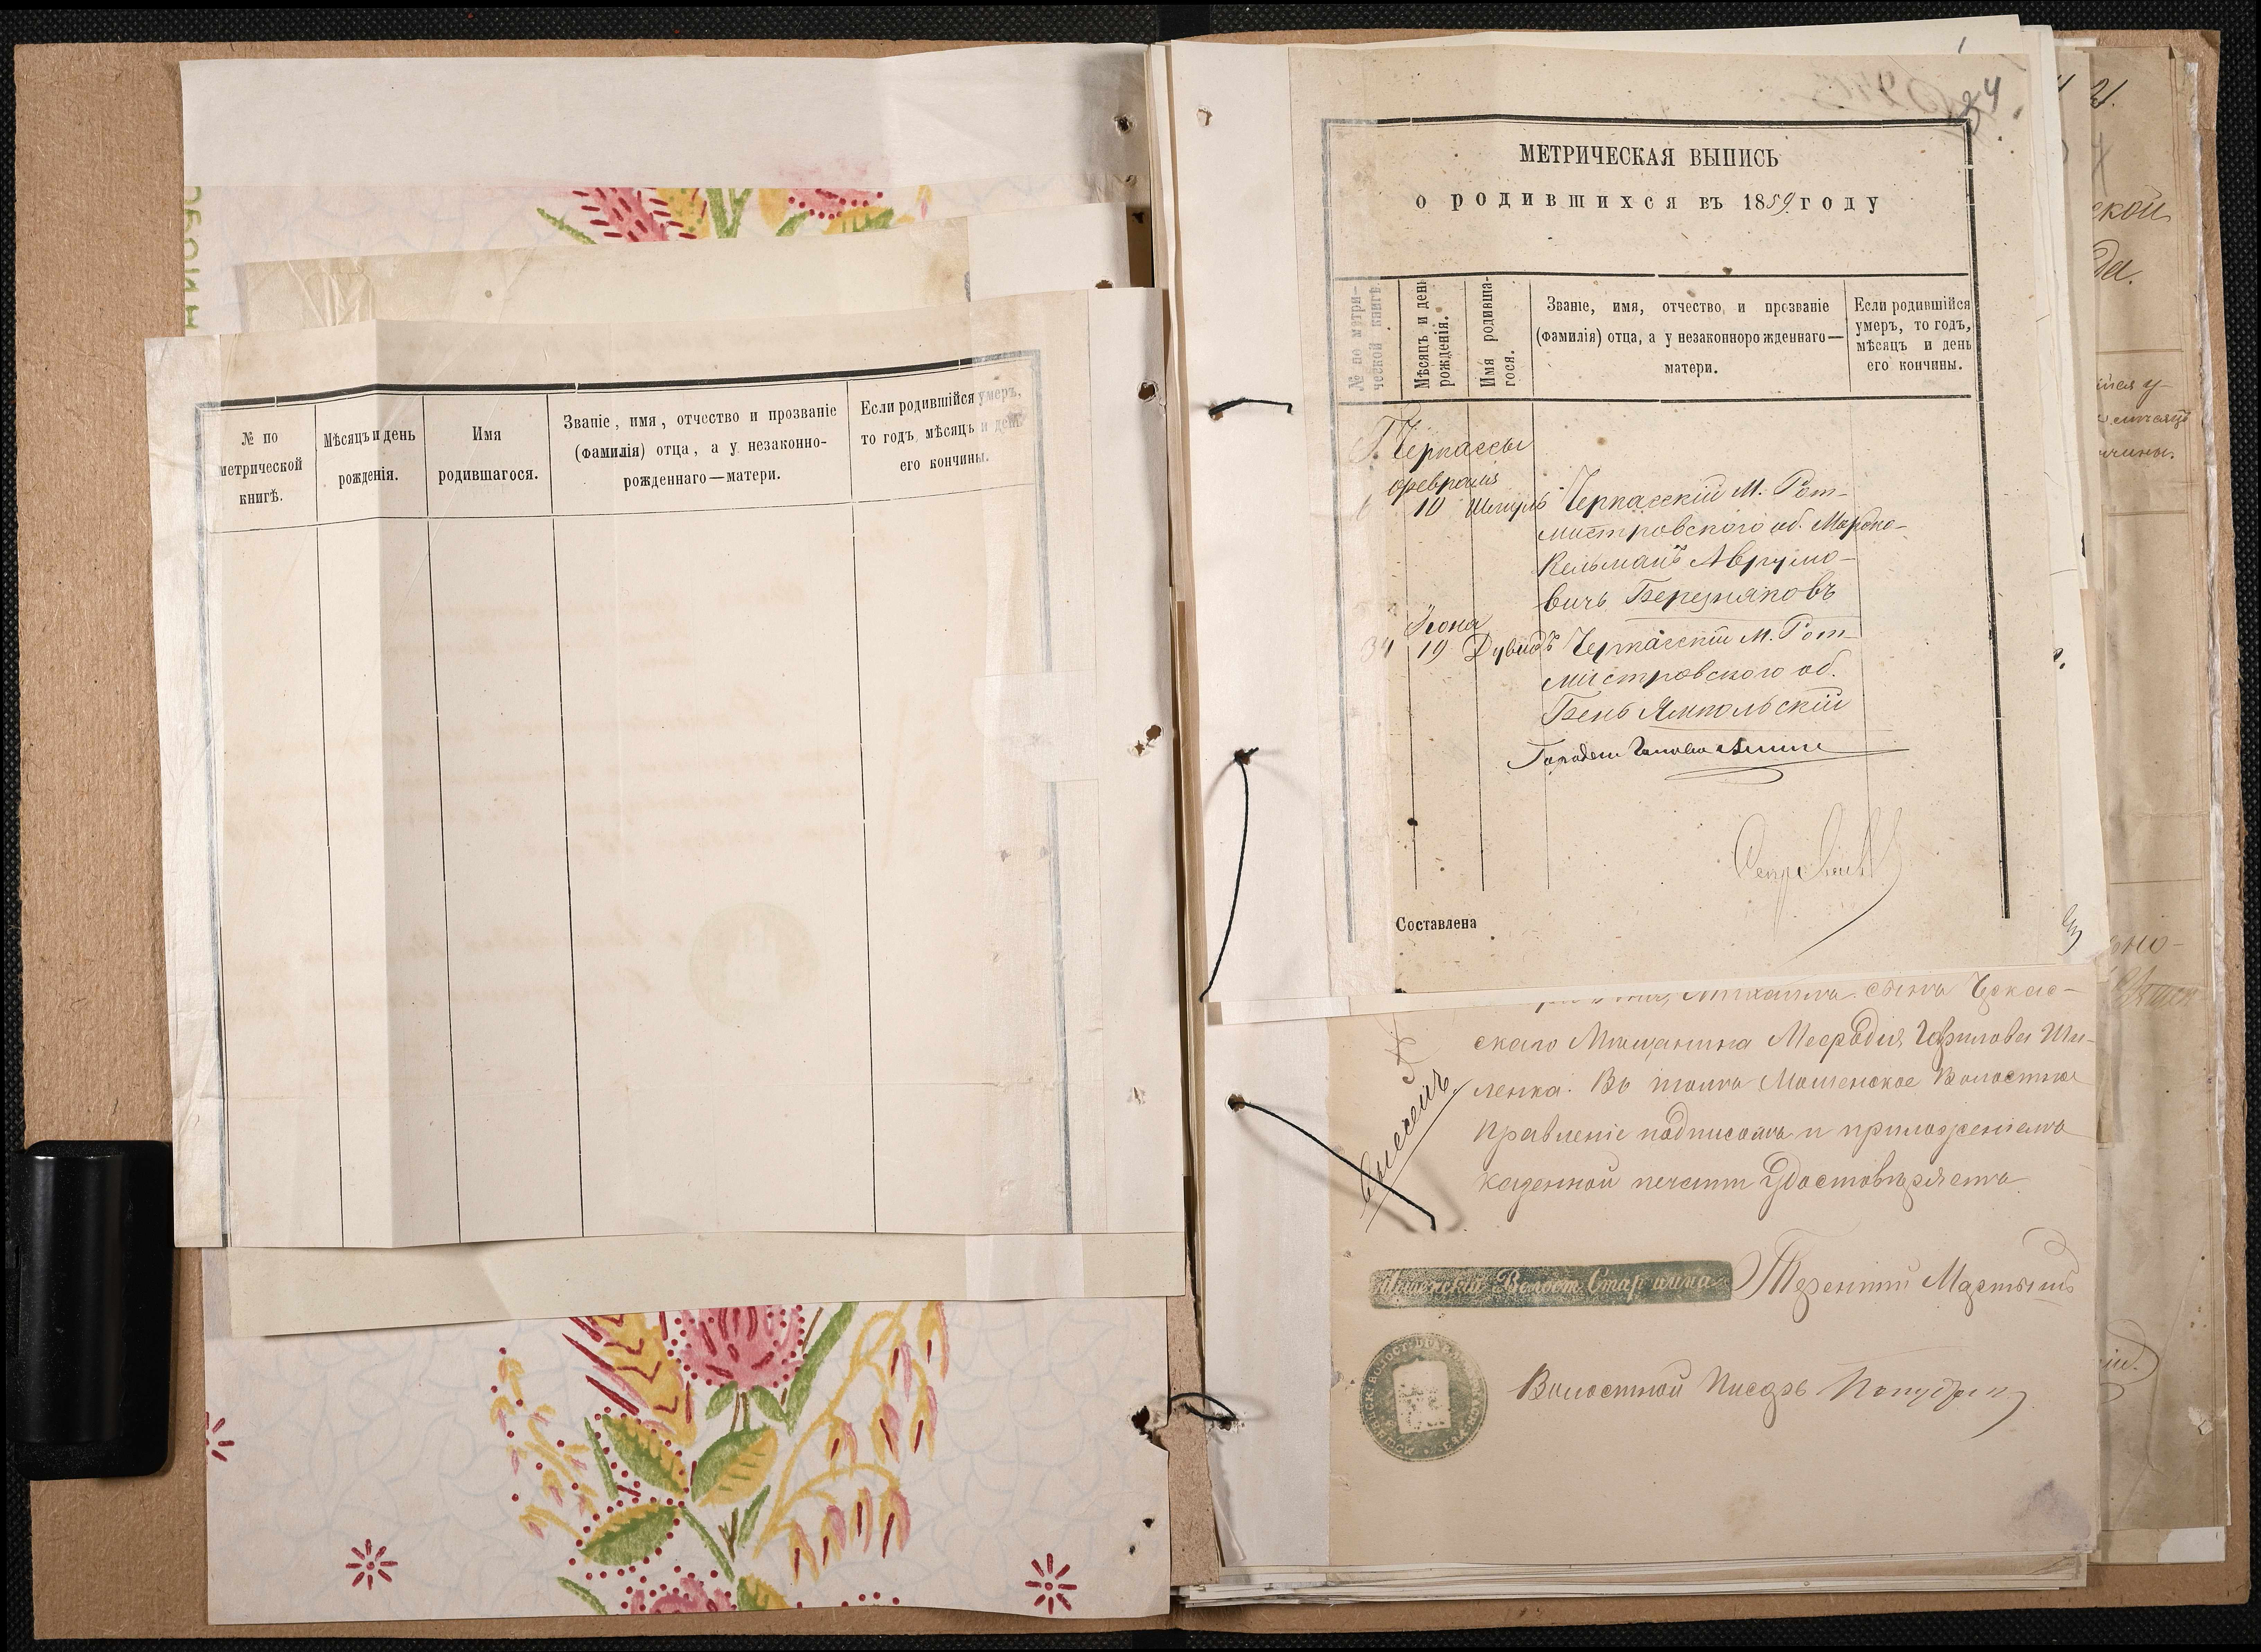 № по
метрической
книгѣ.
Мѣсяцъ и день
рожденія.
Имя
родившагося.
Званіе, имя, отчество и прозваніе
(фамилія) отца, а у незаконно-
рожденнаго—матери.
Если родившійся умеръ,
то годъ, мѣсяцъ и день
его кончины.
34
МЕТРИЧЕСКАЯ ВЫПИСЬ
о родившихся въ 1859 году
№ по метри-
ческой книгѣ
Мѣсяцъ и день
рожденія.
Имя родивша-
гося.
Званіе, имя, отчество, и прозваніе
(фамилія) отца, а у незаконнорожденнаго—
матери.
Если родившійся
умеръ, то годъ,
мѣсяцъ и день
его кончины.
Г. Черкассы
февраля
6 10 Шмуль Черкасскій М. Рот-
мистровского об. Мордко-
Кельманъ Аврумо-
вичь Березняковъ
Іюна
34 19 Дувидъ Черкасскій М. Рот-
мистровского об.
Бень Ямпольскій
Составлена
сына Черкас-
скаго Мѣщанина Мефодія Гаврилова Ши-
ленка. Въ томъ Мошенское Волостное
Правленіе подписомъ и приложеніемъ
казенной печати удостовѣряетъ
Внесенъ
Мошенскій Волост. Старшина Терентій Мартын
Волостной Писарь